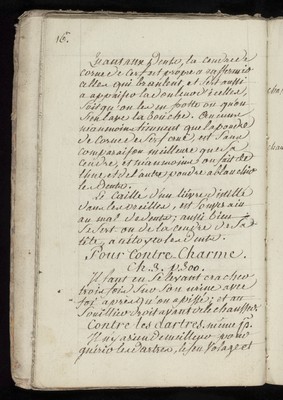 16.
Quant aux Dents, la cendre de
corne de cerf est propre a raffermir
celles qui branlent, et sert aussi
a appaiser la douleur d'icelles,
soit qu'on les en frotte ou qu'on
s'en lave la bouche. On assure
neanmoins que la poudre
de corne de cerf crue, est sans
comparaison meilleure que la
cendre, et neanmoins on fait de
l'une et de l'autre poudre a blanchir
les Dents.
Le Caillé d'un lievre distillé
dans les oreilles, est souverain
au mal de Dents; aussi bien
se sert-on de la cendre de sa
tête, a nétoyer les dents.
Pour Contre Charme.
Ch. 3. p. 300.
Il faut en se levant cracher
trois fois sur son urine avec
foi après qu'on a pissé; et au
Soullier droit avant de le chausser.
Contre les dartres. même p.
Il n'y a rien de meilleur pour
guerir les dartres, le feu volage et